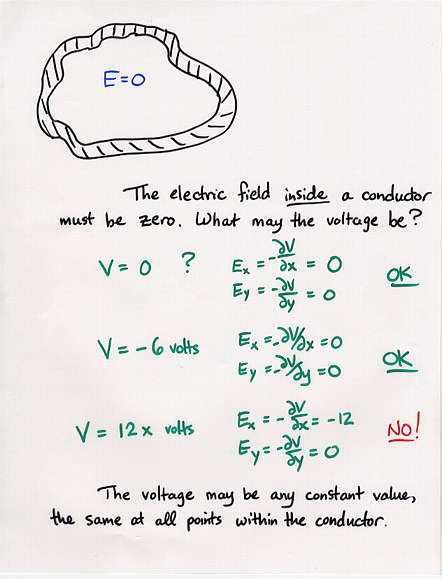 E=0
The electric field inside a conductor
must be zero. What may the voltage be?
V = 0 ? Ex = -∂V/∂x = 0 OK
Ey = -∂V/∂y = 0
V = -6 volts Ex = -∂V/∂x = 0 OK
Ey = -∂V/∂y = 0
V = 12x volts Ex = -∂V/∂x = -12 NO!
Ey = -∂V/∂y = 0
The voltage may be any constant value,
the same at all points within the conductor.